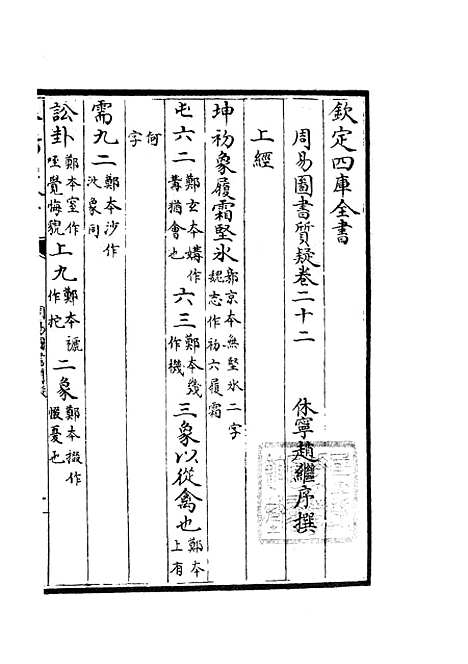 欽定四庫全書
周易圖書質疑卷二十二　休寧趙繼序撰
上經
坤初象履霜堅氷郭京本無堅氷二字魏志作初六履霜
屯六二鄭玄本媾作冓猶會也六三鄭本幾作機三象以從禽也鄭本上有
何字
需九二鄭本沙作沚象同
訟卦鄭本窒作咥覺悔貌上九鄭本褫作拕二象鄭本掇作惙憂也